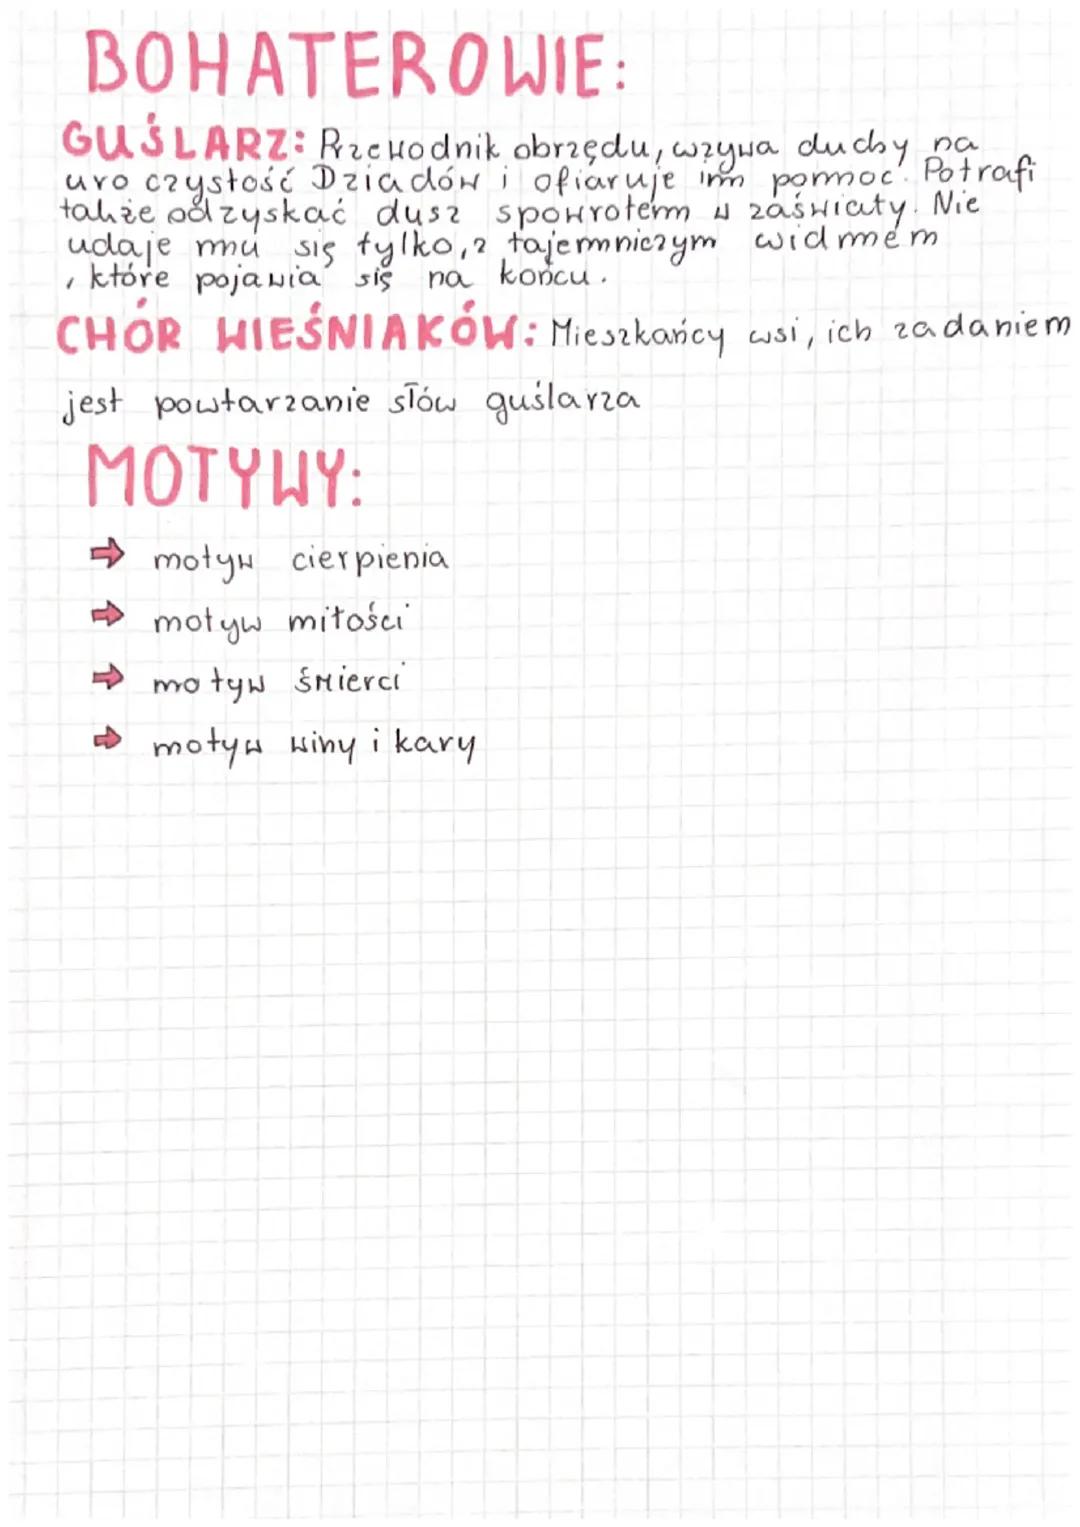 BOHATEROWIE:
GUŚLARZ: Przewodnik obrzędu, wzywa duchy na
uroczystość Dziadów i ofiaruje im pomoc. Potrafi
także odzyskać dusz spowrotem w zaświaty. Nie
udaje mu się tylko, z tajemniczym widmem
, które pojawia się na końcu.
CHÓR WIEŚNIAKÓW: Mieszkańcy wsi, ich zadaniem
jest powtarzanie słów guślarza
MOTYWY:
⇒ motyw cierpienia
⇒ motyw miłości
⇒ motyw śmierci
⇒ motyw winy i kary